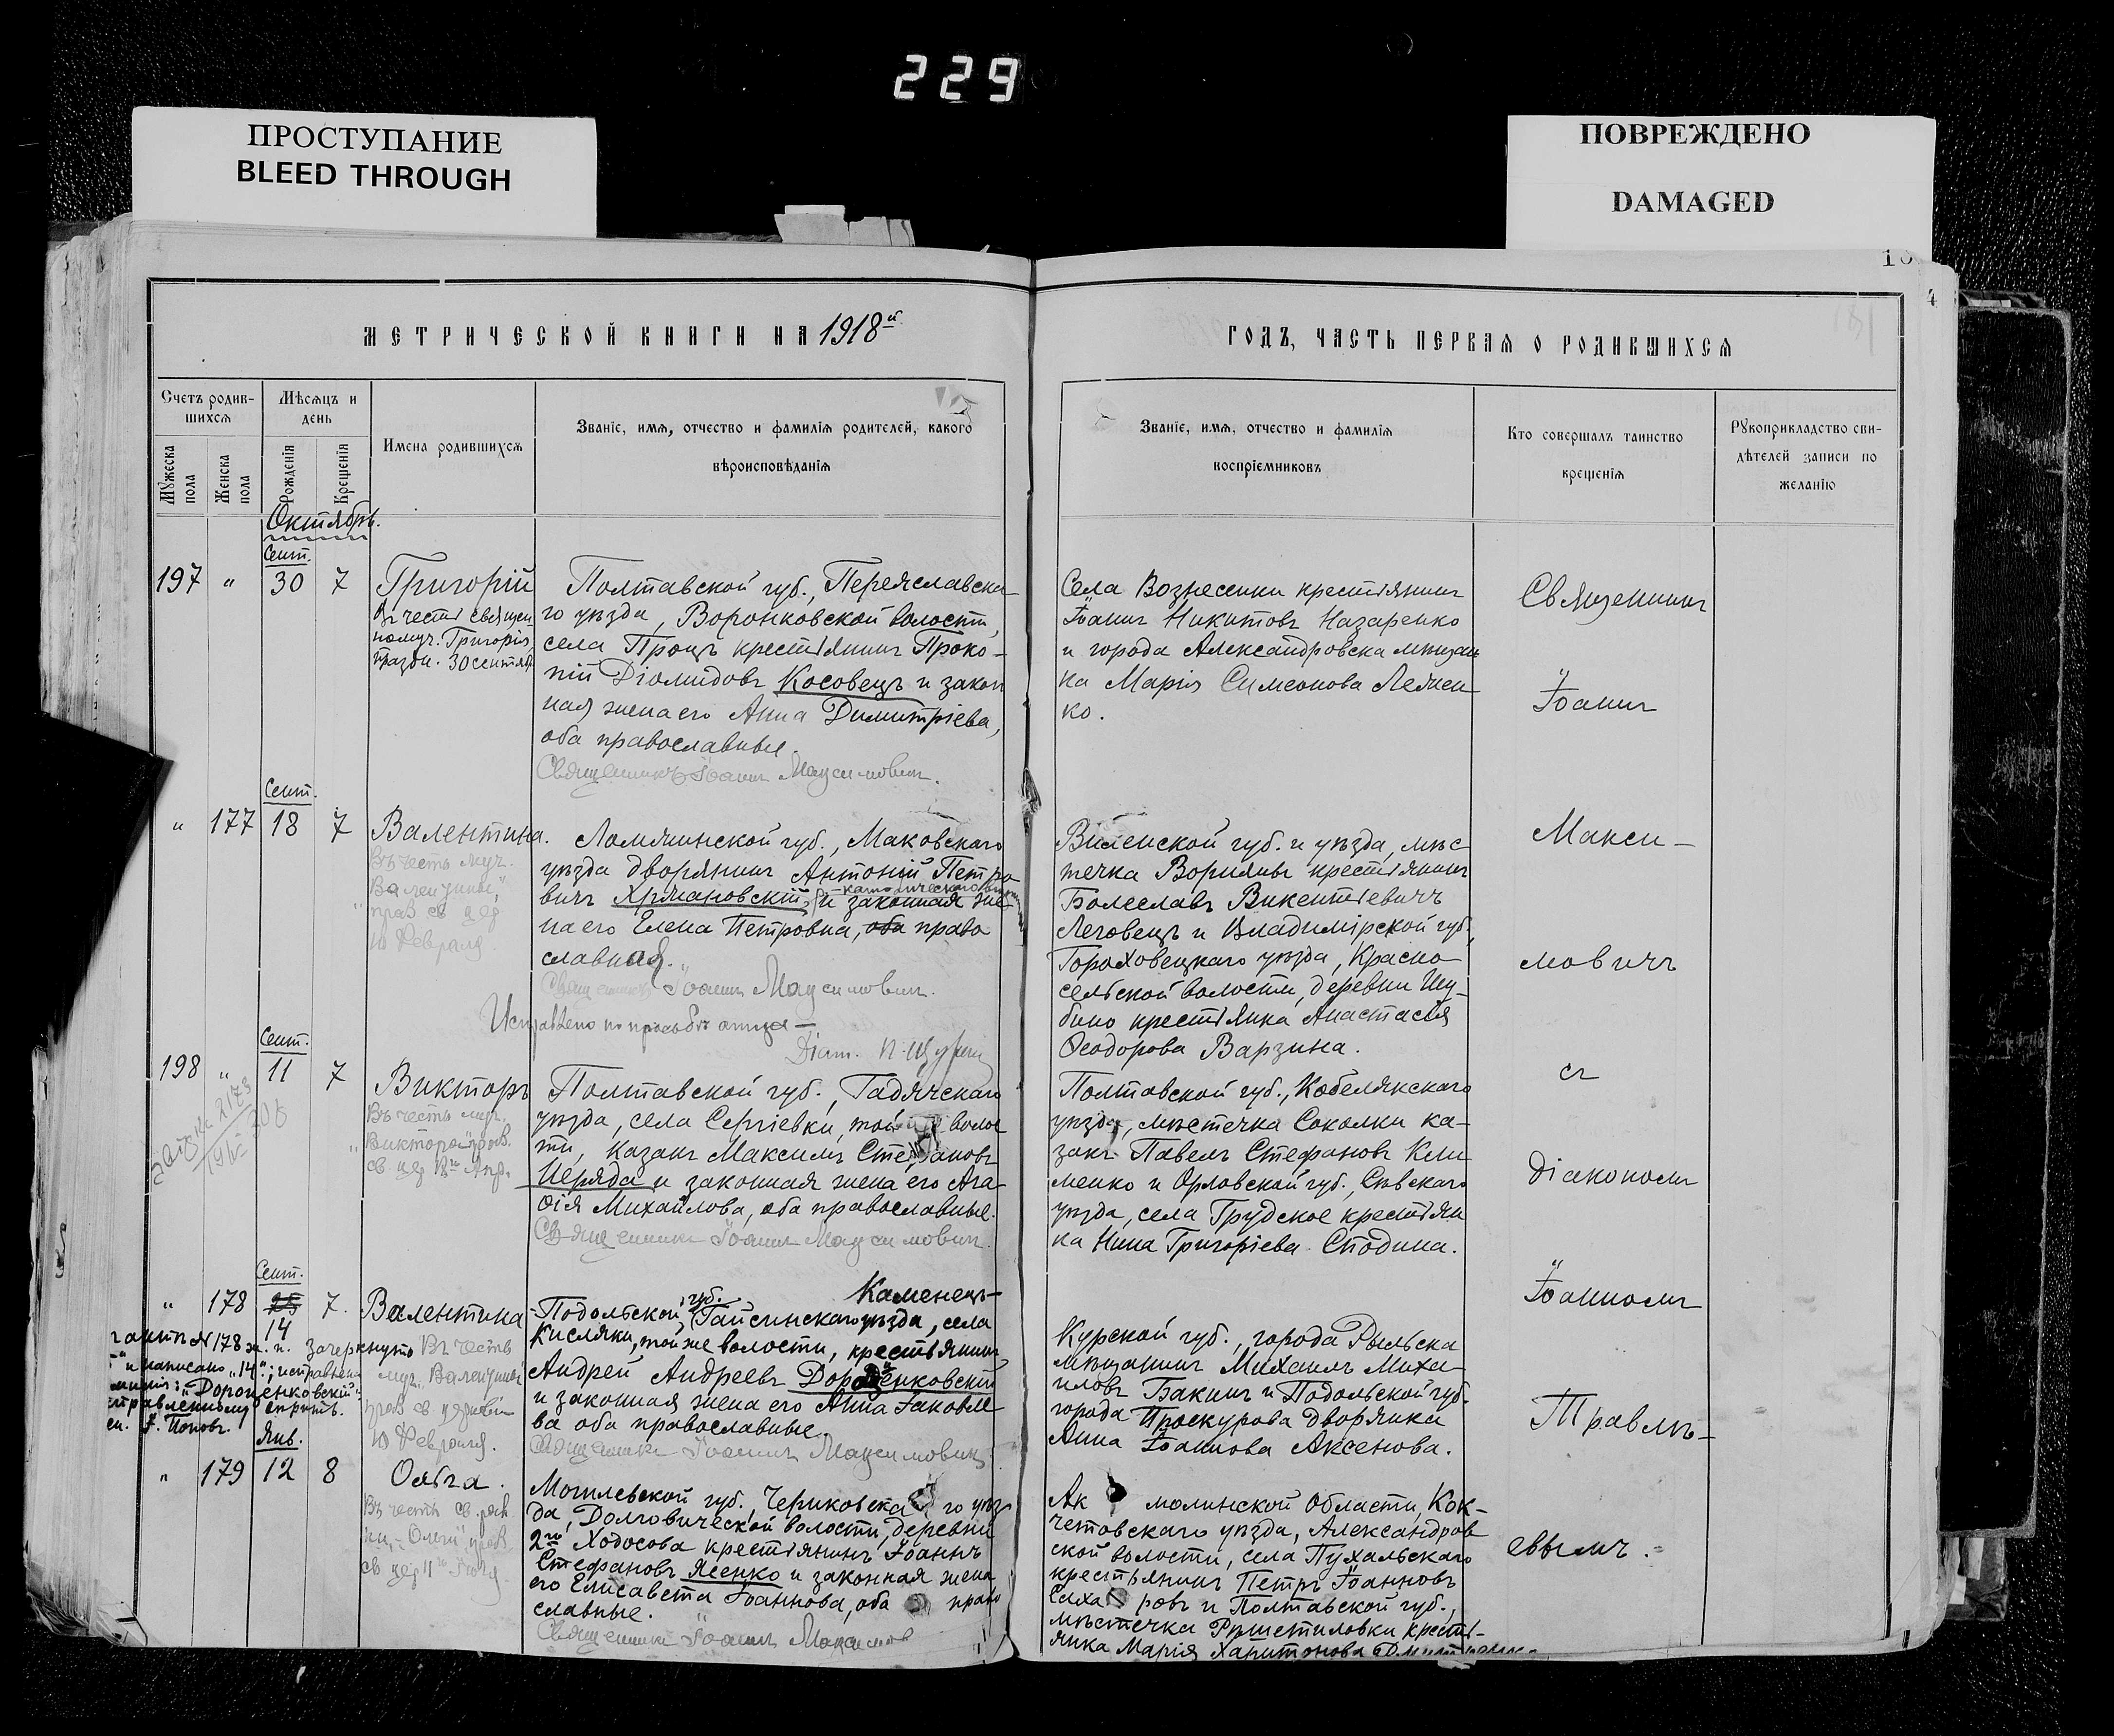 229
ПРОСТУПАНИЕ
BLEED THROUGH
ПОВРЕЖДЕНО
DAMAGED
4
МЕТРИЧЕСКОЙ КНИГИ НА 1918й
ГОДЪ, ЧАСТЬ ПЕРВАЯ О РОДИВШИХСЯ
Счетъ родив-
шихся
Мѣсяцъ и
день
Мужеска
пола
Женска
пола
Рожденія
Крещенія
Имена родившихся
Званіе, имя, отчество и фамилія родителей, какого
вѣроисповѣданія
Званіе, имя, отчество и фамилія
воспріемниковъ
Кто совершалъ таинство
крещенія
Рукоприкладство сви-
дѣтелей записи по
желанію
Октябрь.
Сент.
197 " 30 7
Григорій
Въ честь священ-
номуч. Григорія,
праздн. 30 сентяб.
Полтавской губ., Переяславска-
го уѣзда, Воронковской волости,
села Процъ крестьянинъ Проко-
пій Діомидовъ Косовецъ и закон
ная жена его Анна Димитріева,
оба православные.
Священникъ Іоаннъ Максимовичъ.
Села Вознесенки крестьянинъ
Іоаннъ Никитовъ Назаренко
и города Александровска мѣщан
ка Марія Симеонова Лемен
ко.
Сент.
" 177 18 7
Валентина.
Въ честь муч.
Валентины,
праз св цер
10 Февраля.
Ломжинской губ., Маковскаго
уѣзда дворянинъ Антоній Петро
вичъ Хржановскій, католическаго и законная же-
на его Елена Петровна, оба право
славная.
Священникъ Іоаннъ Максимовичъ.
Исправлено по просьбѣ отца —
Виленской губ. и уѣзда, мѣс-
течка Ворняны крестьянинъ
Болеславъ Викентіевичъ
Леговецъ и Владимірской губ.,
Гороховецкаго уѣзда, Красно-
сельской волости, деревни Шу-
бино крестьянка Анастасія
Ѳеодорова Варзина.
Сент.
198 " 11 7
Викторъ
Въ честь муч.
Виктора, праз.
св цер
Полтавской губ., Гадячскаго
уѣзда, села Сергіевки, той волос
ти, казакъ Максимъ Стефановъ
Шеряда и законная жена его Ага-
ѳія Михайлова, оба православные.
Священникъ Іоаннъ Максимовичъ.
Полтавской губ., Кобелякскаго
уѣзда, мѣстечка Соколки ка-
закъ Павелъ Стефановъ Кли
менко и Орловской губ., Сѣвскаго
уѣзда, села Грудское крестьян
ка Нина Григоріева Сподина.
Сент.
" 178 25 7.
14
Валентина
Въ честь
муч. Валентины
праз св. церковію
10 Февраля.
Каменецъ-
-Подольской губ. Гайсинскаго уѣзда, села
Кисляки, той же волости, крестьянинъ
Андрей Андреевъ Дорошенковскій
и законная жена его Анна Іаковле
ва оба православные.
Священникъ Іоаннъ Максимовичъ
Курской губ., города Рыльска
мѣщанинъ Михаилъ Миха-
иловъ Бакинъ и Подольской губ.
города Проскурова дворянка
Анна Іоаннова Аксенова.
актѣ № 178 ж. п. зачеркнуто
и написано „14"; исправлен
„Дорошенковскій"
исправленному вѣрить.
Поповъ.
Янв.
" 179 12 8
Ольга.
Въ честь св рав
Ольги, праз.
св цер 11го Іюля.
Могилевской губ., Чериковска го уѣз
да, Долговической волости, деревни
2го Ходосова крестьянинъ Іоаннъ
Стефановъ Ясенко и законная жена
его Елисавета Іоаннова, оба право
славные.
Священникъ Іоаннъ Максимов
Ак молинской области, Кок-
четовскаго уѣзда, Александров
ской волости, села Пухальскаго
крестьянинъ Петръ Іоанновъ
Саха ровъ и Полтавской губ.,
мѣстечка Рѣшетиловки кресть-
янка Марія Харитонова
Священникъ
Іоаннъ
Макси-
мовичъ
съ
діакономъ
Іоанномъ
Травлѣ-
евымъ.